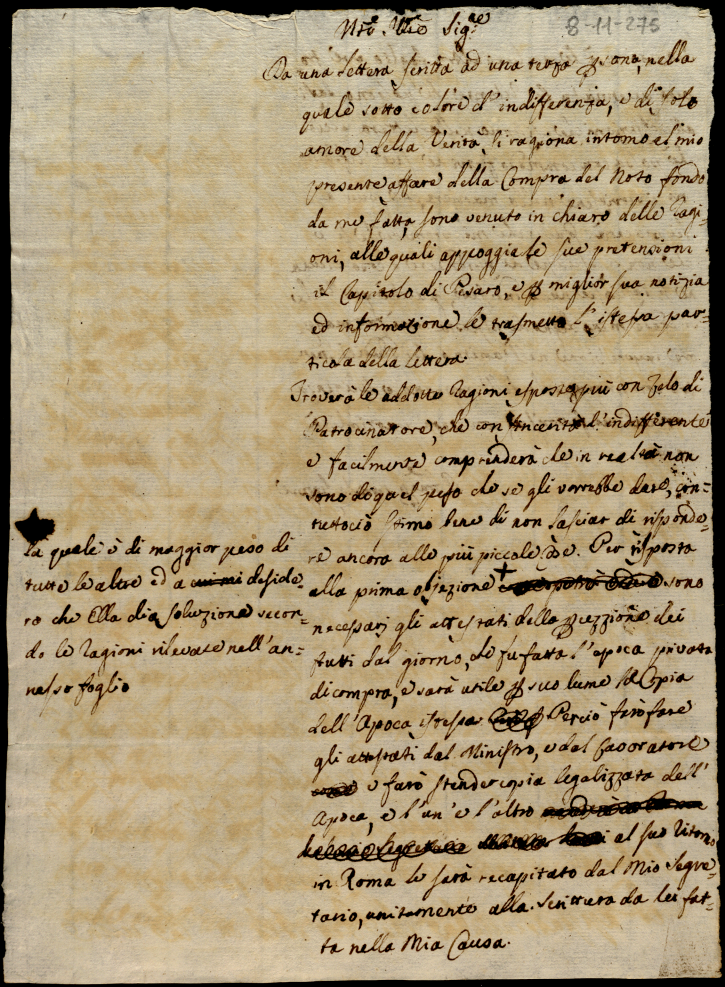 8-11-275
Da una lettera scritta ad una terza ꝑsona, nella
quale sotto colore d'indifferenza, e di solo
amore della Verità, si ragiona intorno al mio
presente affare della Compra del Noto fondo
da me fatta, sono venuto in chiaro delle Ragi-
oni, alle quali appoggia le sue pretensioni
il Capitolo di Pesaro, e ꝑ miglior sua notizia
ed informazione le trasmetto l'istessa par-
ticola della lettera.
Troverà le addotte Ragioni esposte più con Zelo di
Patrocinatore, che con sincerità d'indifferente
e facilmente comprenderà che in realtà non
sono di quel peso che se gli vorrebbe dare, con-
tuttociò stimo bene di non lasciar di risponde-
re ancora alle più piccole cose. Per risposta
alla prima objezione + sono
necessarj gli attestati della ꝑcezzione dei
frutti dal giorno, che fu fatta l'epoca privata
di compra, e sarà utile ꝑ suo lume la Copia
dell'Apoca istessa Perciò farò fare
gli attestati dal Ministro, e dal Lavoratore
e farò stender copia legalizzata dell'
Apoca, e l'un' e l'altro
al suo Ritorno
in Roma le sarà recapitato dal Mio Segre-
tario, unitamente alla Scrittura da lei fat-
ta nella Mia Causa.
la quale è di maggior peso di
tutte le altre ed a deside-
ro che Ella dia soluzione secon-
do le Ragioni rilevate nell'an-
nesso foglio